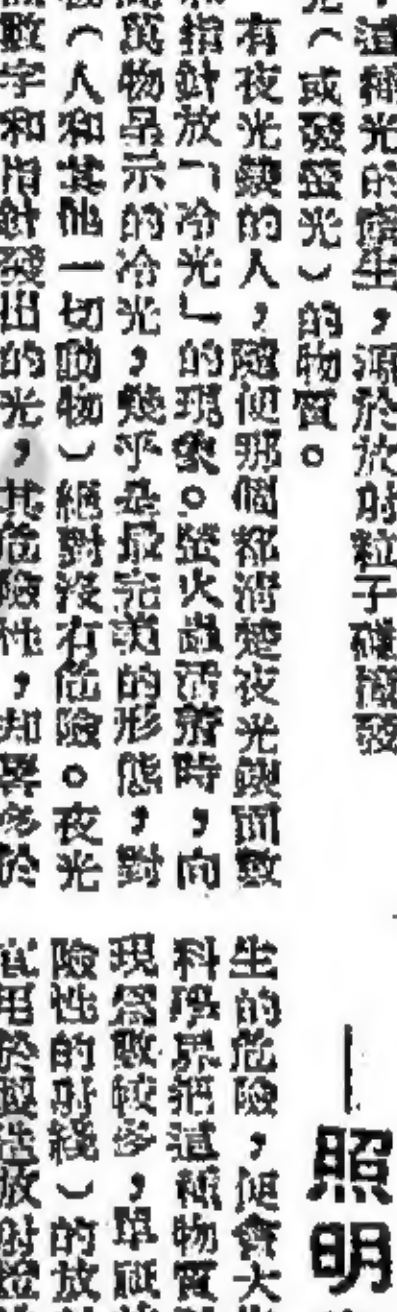 ，這種光的產生，源於放射粒子碰擊發
光（或發螢光）的物質。
有夜光錶的人，隨便那個都清楚夜光錶面數
指針放「冷光」的現象。螢火蟲活着時，向
萬物呈示的冷光，幾乎是最完美的形態，對
（人和其他一切動物）絕對沒有危險。夜光
數字和指針發出的光，其危險性，却異多於
照明
生的危險，便會大
科學界把這種物質
現為數較多，單
險性的射綫）的放
用於製造放射